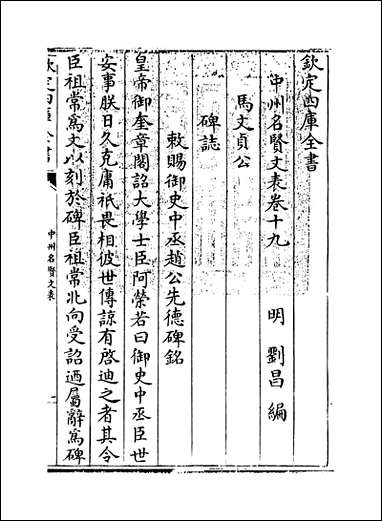 欽定四庫全書
中州名賢文表卷十九
明 劉昌 編
馬文貞公
碑誌
敕賜御史中丞趙公先德碑銘
皇帝御奎章閣詔大學士臣阿榮若曰御史中丞臣世
安事朕日久克庸祇畏相彼世傳諒有啓迪之者其令
臣祖常為文以刻於碑臣祖常北向受詔迺屬辭為碑
欽定四庫全書
中州名賢文表
一